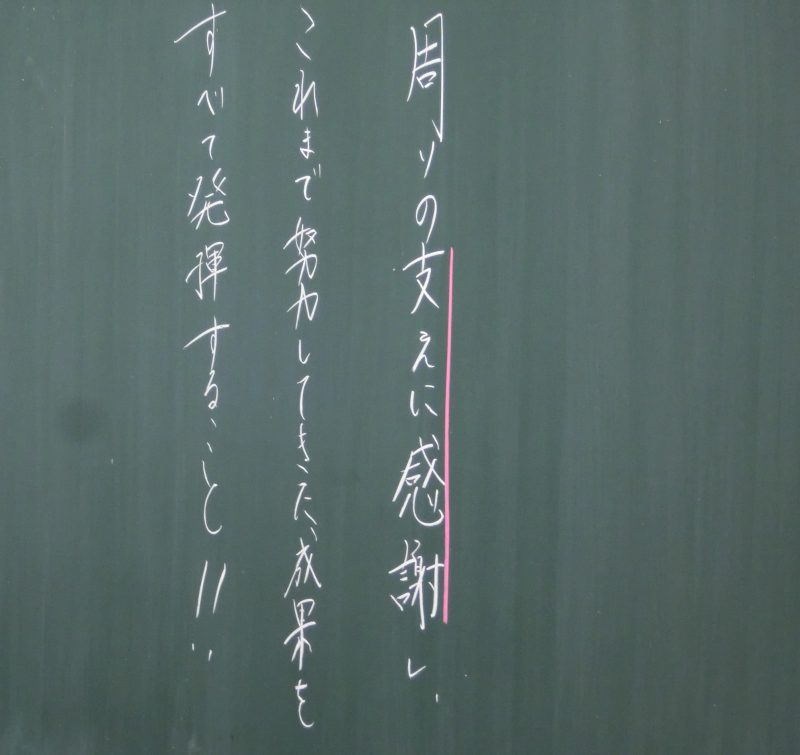 周りの支えに感謝し、
これまで努力してきた成果を
すべて発揮すること!!